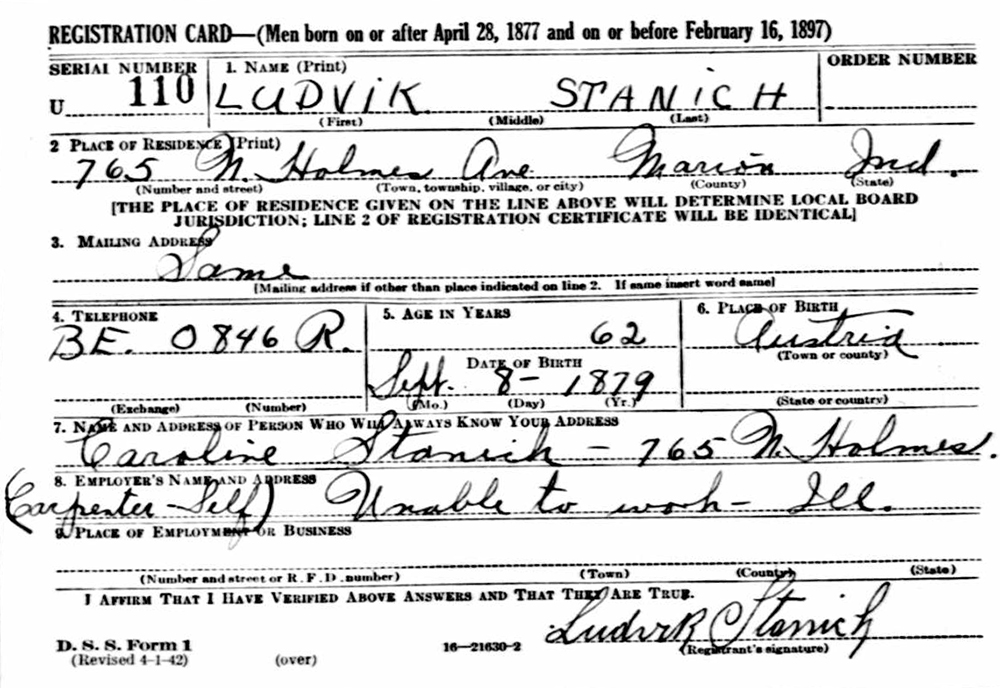 REGISTRATION CARD—(Men born on or after April 28, 1877 and on or before February 16, 1897)
SERIAL NUMBER 1. NAME (Print) ORDER NUMBER
U 110 LUDVIK STANICH
(First) (Middle) (Last)
2 PLACE OF RESIDENCE (Print)
765 N. Holmes Ave Marion Ind.
(Number and street) (Town, township, village, or city) (County) (State)
[THE PLACE OF RESIDENCE GIVEN ON THE LINE ABOVE WILL DETERMINE LOCAL BOARD
JURISDICTION; LINE 2 OF REGISTRATION CERTIFICATE WILL BE IDENTICAL]
3. MAILING ADDRESS
Same
[Mailing address if other than place indicated on line 2. If same insert word same]
4. TELEPHONE 5. AGE IN YEARS 6. PLACE OF BIRTH
BE. 0846 R. 62 Austria
(Town or county)
DATE OF BIRTH
Sept. 8- 1879
(Exchange) (Number) (Mo.) (Day) (Yr.) (State or country)
7. NAME AND ADDRESS OF PERSON WHO WILL ALWAYS KNOW YOUR ADDRESS
Caroline Stanich - 765 N. Holmes.
8. EMPLOYER'S NAME AND ADDRESS
(Carpenter-Self) Unable to work- Ill.
9. PLACE OF EMPLOYMENT OR BUSINESS
(Number and street or R. F. D. number) (Town) (County) (State)
I AFFIRM THAT I HAVE VERIFIED ABOVE ANSWERS AND THAT THEY ARE TRUE.
Ludvik Stanich
D. S. S. Form 1 16—21630-2 (Registrant's signature)
(Revised 4-1-42) (over)